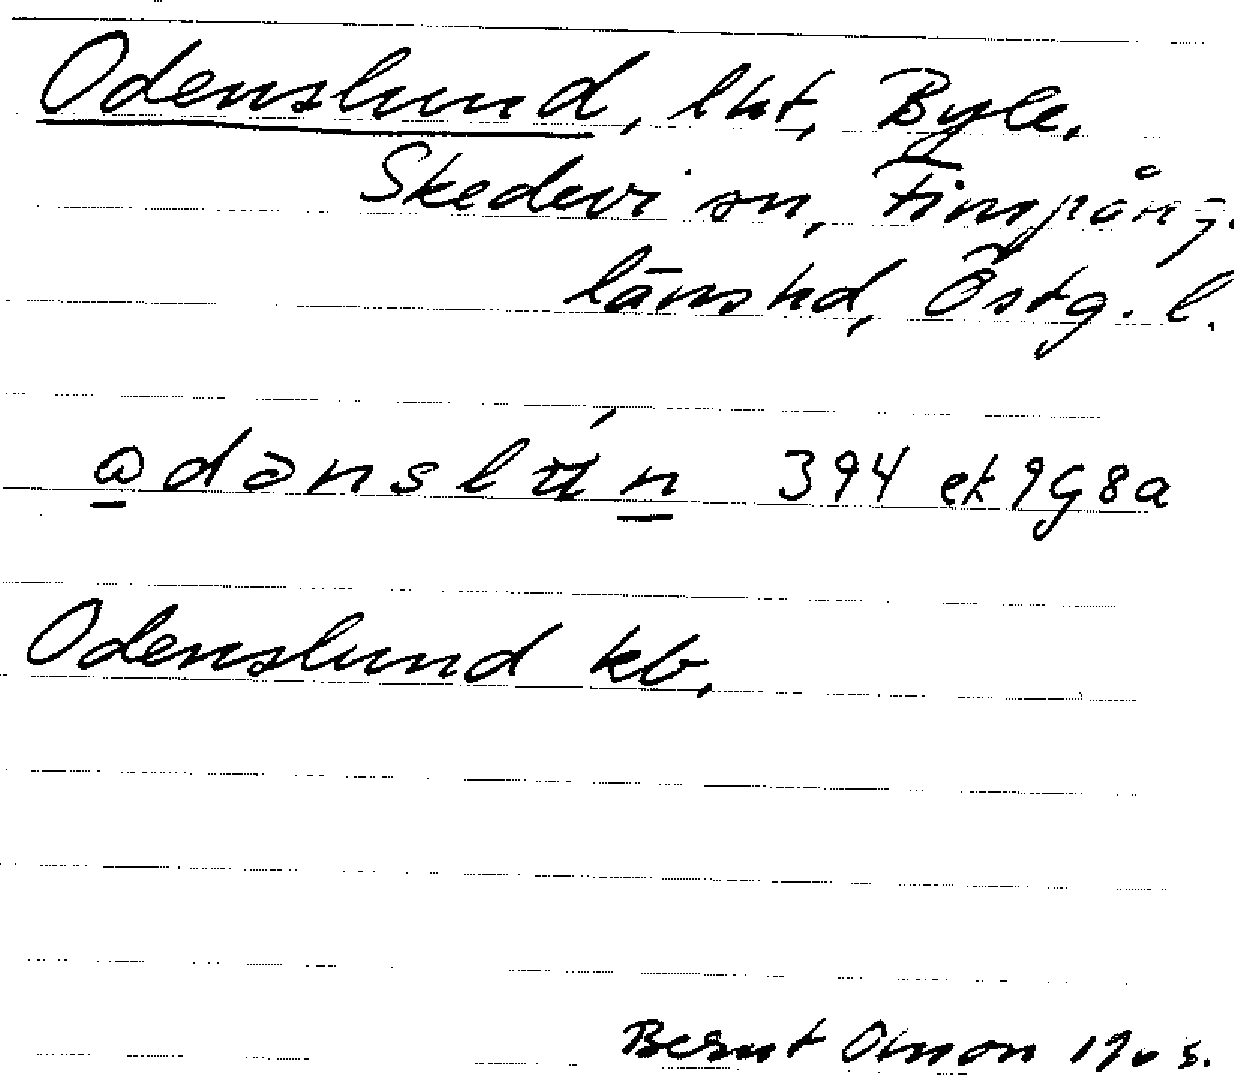 Odenslund, lht, Byle,
Skedevi sn, Finspång.
länshd, Östg. l.
ωdənslưn 394 ek 9G8a
Odenslund kb.
Bernt Olsson 1905.